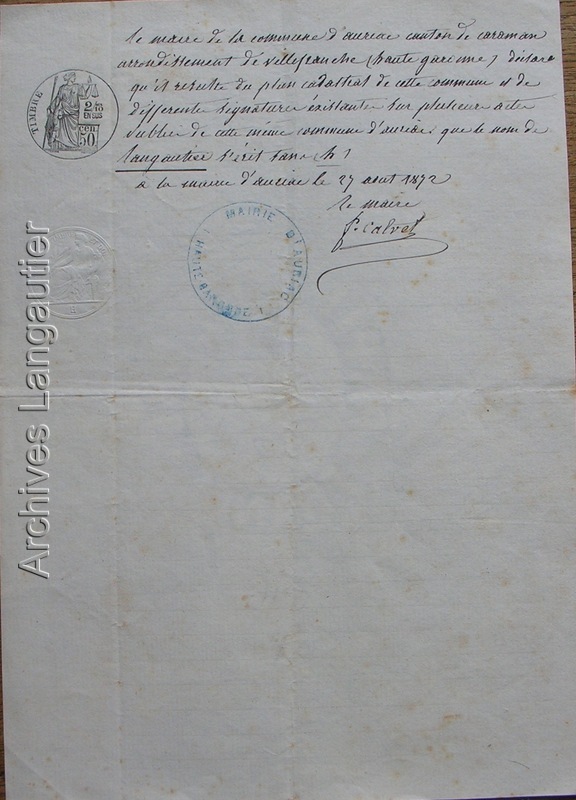 le maire de la commune d'auriac canton de caraman
arrondissement de villefranche (haute garonne) déclare
qu'il resulte du plan cadastral de cette commune et de
differente signature existante sur plusieur acte
publié de cette meme commune d'auriac que le nom de
langautier s'écrit sans h
a la mairie d'auriac le 27 aout 1872
le maire
f. Calvet
TIMBRE
2/10
EN SUS
50 CEN
MAIRIE D'AURIAC HAUTE GARONNE
Archives Langautier